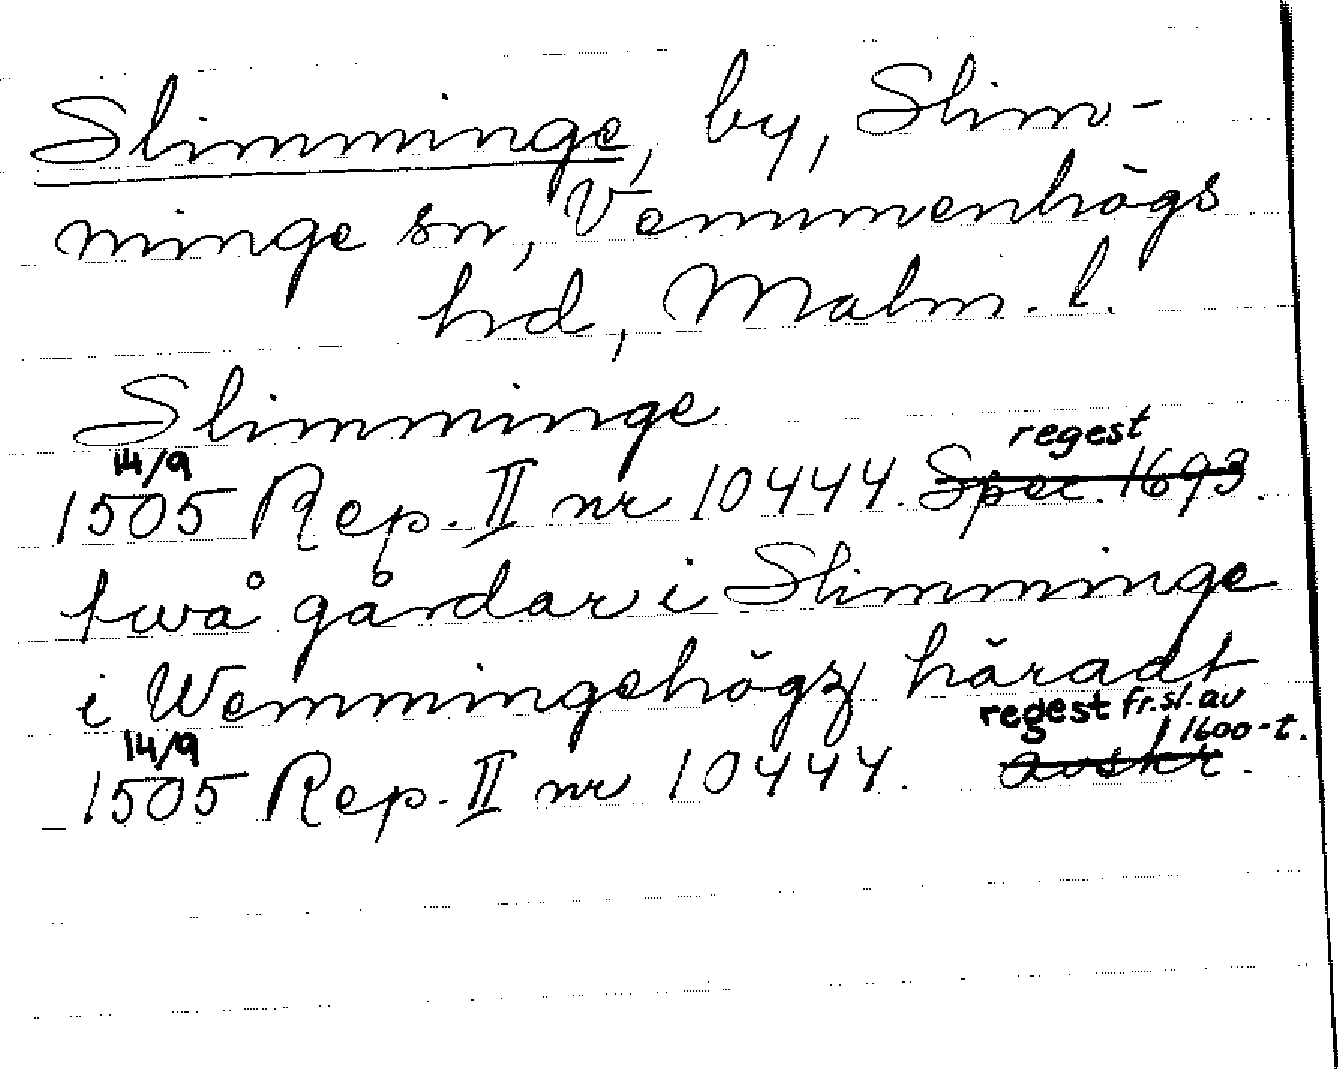 Slimminge, by, Slim-
minge sn, Vemmenhögs
hd, Malm. l.
Slimminge
14/9
regest
1505 Rep. II nr 10444. Spec. 1693.
twå gårdar i Slimminge
i Wemmingehögz häradt
14/9
regest fr. sl. av
1600-t.
1505 Rep. II nr 10444. avskr.